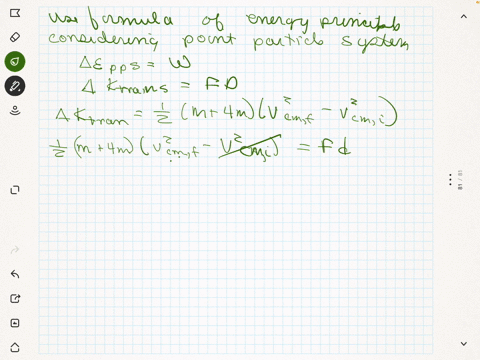 use formula of energy principle
considering point particle system
ΔE pps = W
Δ Ktrans = FD
Δ Ktran = 1/2 (m + 4m) (V²cm,f − V²cm,i)
1/2 (m + 4m) (V²cm,f − V²cm,i) = Fd